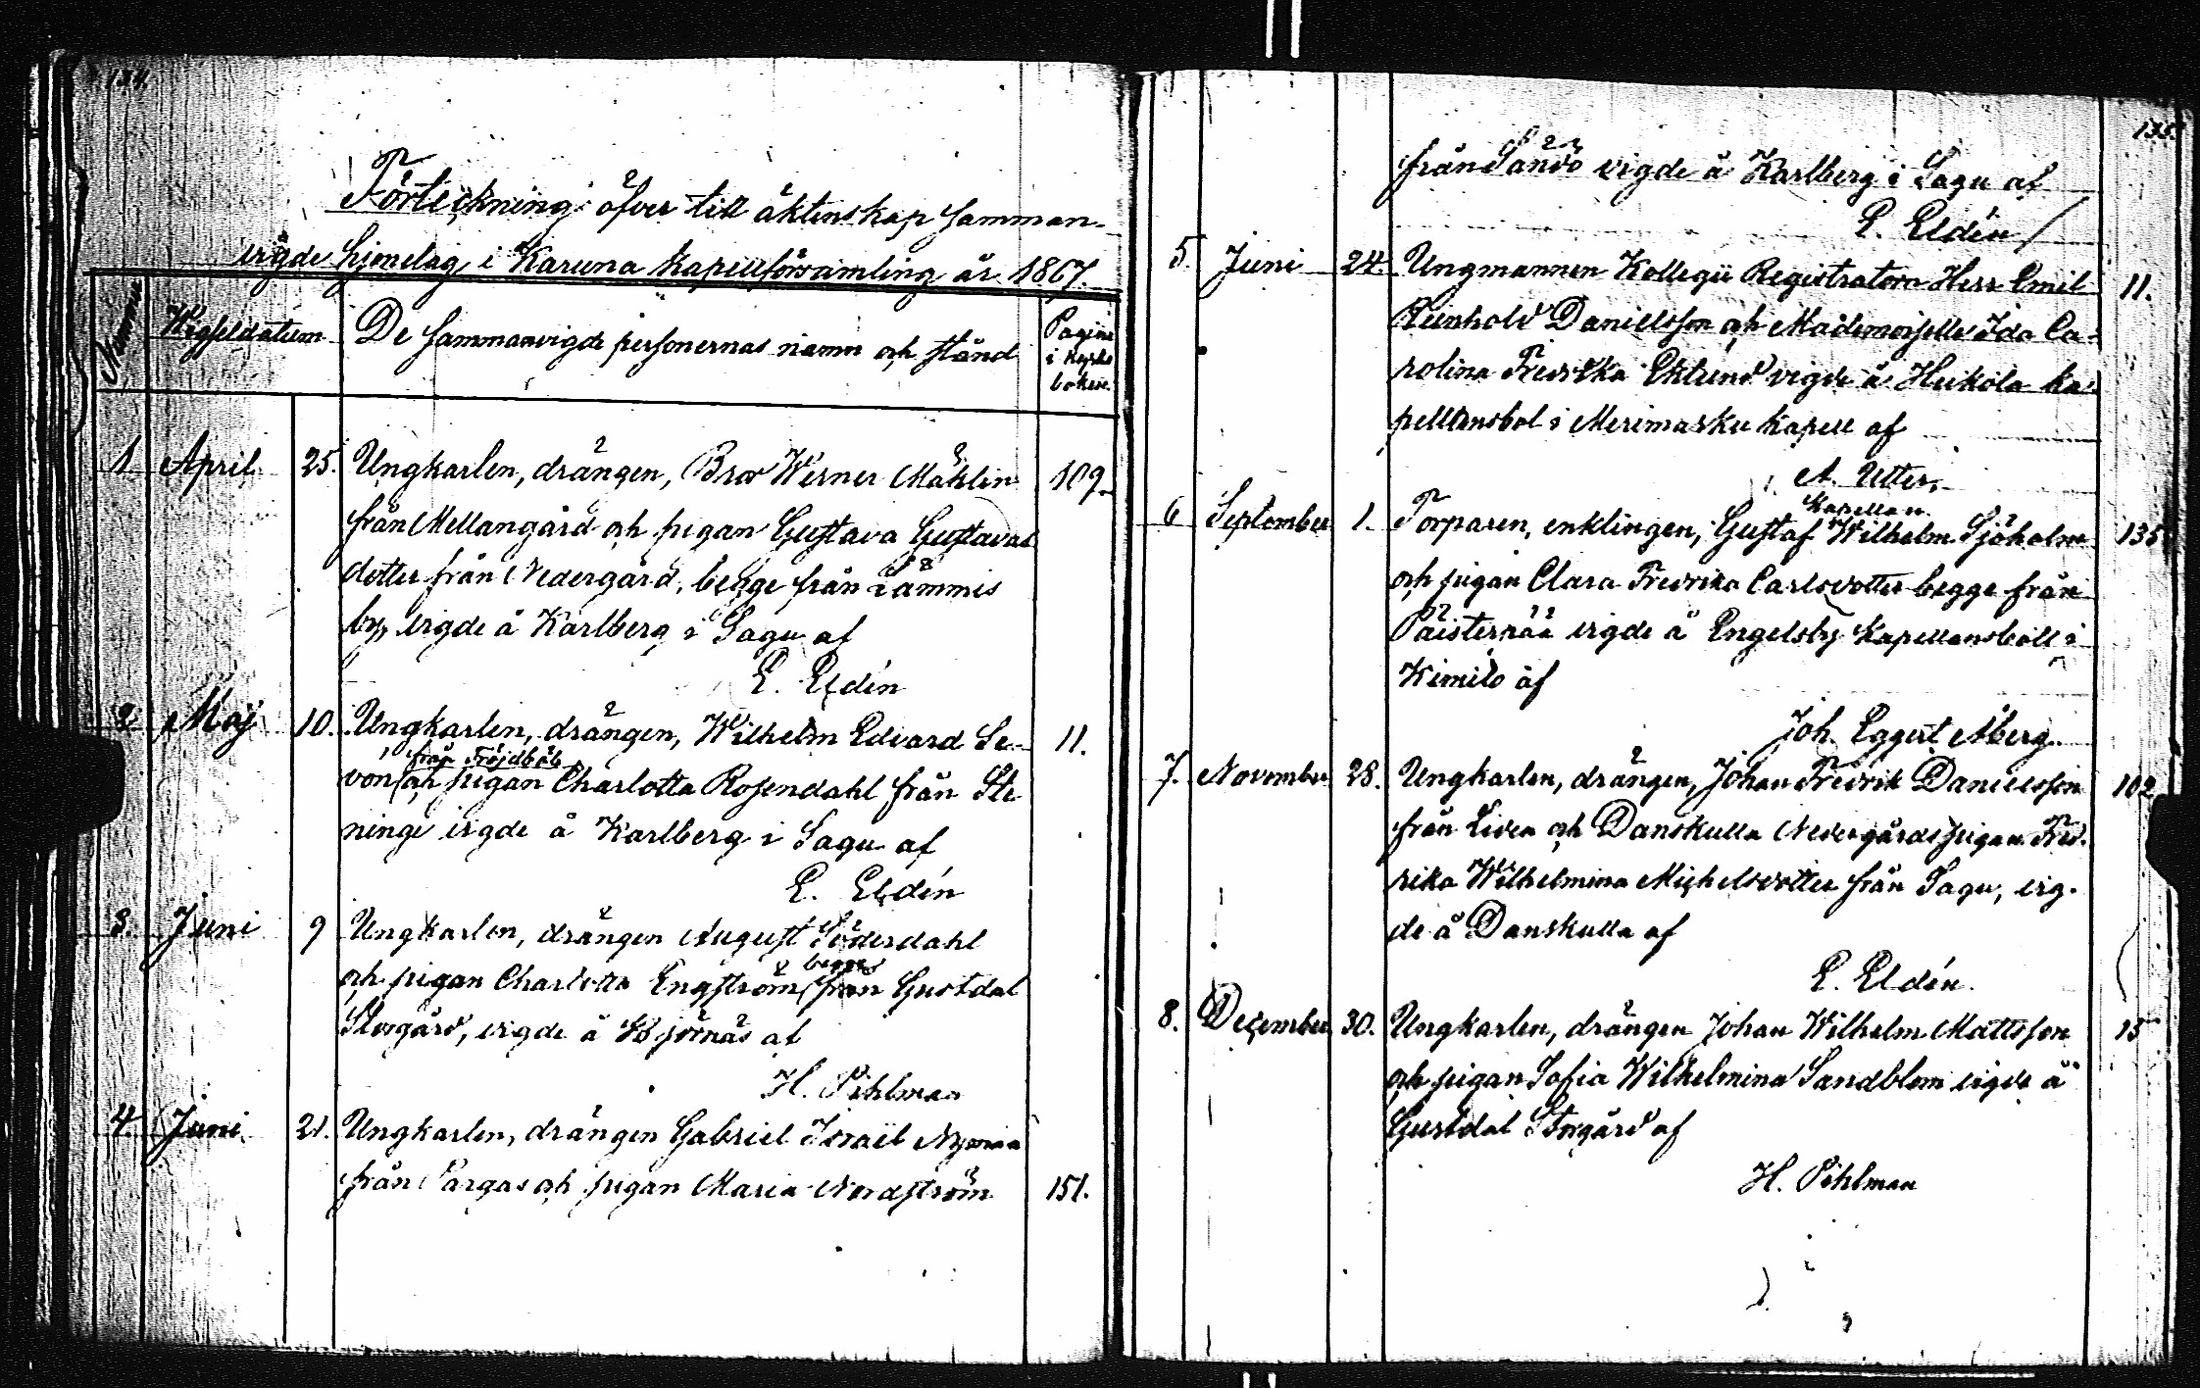 134.
Förteckning öfver till äktenskap samman-
vigde hjonelag i Karuna kapellförsamling år 1867.
Nummer
Wigseldatum
De sammanvigde personernas namn och stånd
Pagina
i kyrko
boken.
1 April 25. Ungkarlen, drängen, Bror Werner Mählin 109.
från Mellangård och pigan Gustava Gustavas
dotter från Nedergård, begge från Lämmis
by, vigde å Karlberg i Sagu af
E. Eldén
2 Maj 10. Ungkarlen, drängen, Wilhelm Edvard Se- 11.
från Fröjdböle
von och pigan Charlotta Rosendahl från Ste
ninge vigde å Karlberg i Sagu af
E. Eldén
3. Juni 9 Ungkarlen, drängen August Söderdahl
begge
och pigan Charlotta Engström från Gustdal
Storgård, vigde å Björnäs af
H. Pihlman
4. Juni 21. Ungkarlen, drängen Gabriel Israël Nyman
från Pargas och pigan Maria Nordström 151.
135.
från Sandö vigde å Karlberg i Sagu af
E. Eldén
5. Juni 24. Ungmannen Kollegii Registratorn Herr Emil 11.
Reinhold Danielsson och Mademoiselle Ida Ca-
rolina Fredrika Eklund vigde å Heikola ka-
pellansbol i Merimasku kapell af
A. Utter,
Kapellan.
6 September 1. Torparen, enklingen, Gustaf Wilhelm Sjöholm 135
och pigan Clara Fredrika Carlsdotter begge från
Päisterpää vigde å Engelsby Kapellansböll i
Kimito af
Joh. Eggert Åberg.
7. November 28. Ungkarlen, drängen, Johan Fredrik Danielsson 102
från Liden och Danskulla Nedergårds pigan Fred-
rika Wilhelmina Michelsdotter från Sagu, vig-
de å Danskulla af
E. Eldén.
8. December 30. Ungkarlen, drängen Johan Wilhelm Mattsson 15
och pigan Sofia Wilhelmina Sandblom vigde å
Gustdal Storgård af
H. Pihlman